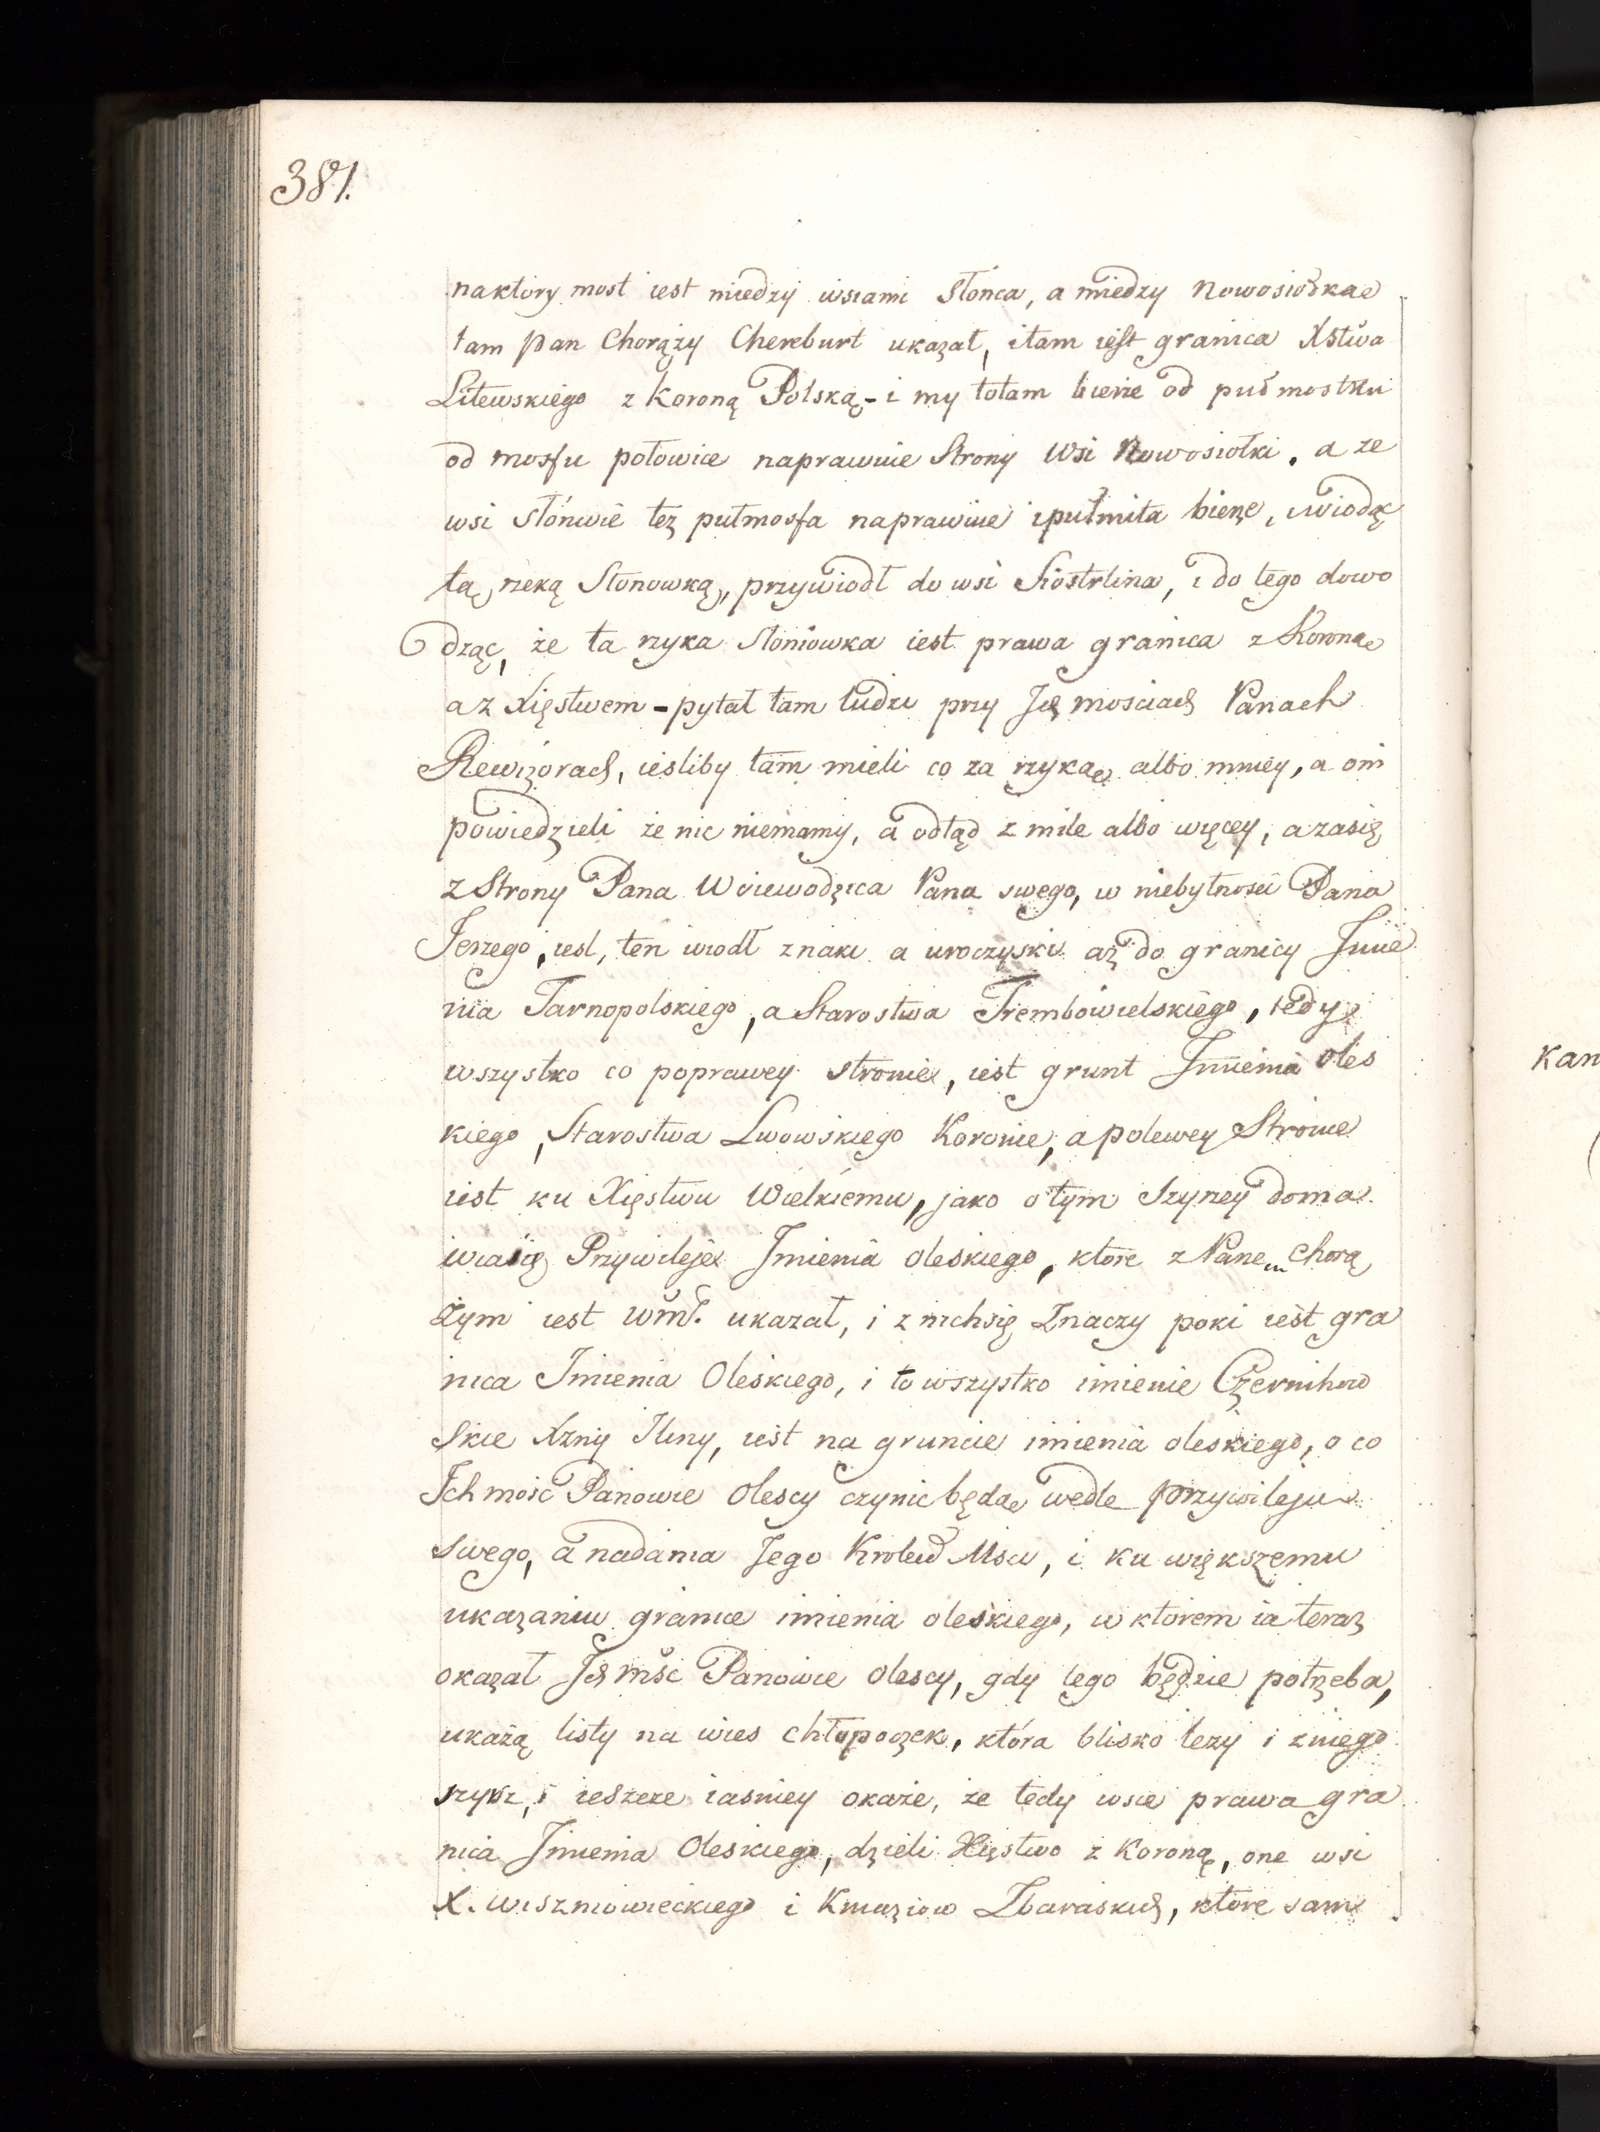 381.
naktory most iest miedzy wsiami Słonca, a miedzy Nowosiołkae
tam pan Chorąży Chereburt ukazał, itam iest granica Xstwa
Litewskiego z Koroną Polską - i my totam bierze od puł mostku
od mosfu połowice naprawuie Strony Wsi Nowosiołki. a ze
wsi słónwie tez pułmosfa naprawiue ipułmita bierze, iwiodąc
tą rzeką Stonowką, przywiodł do wsi Siostrlina, i do tego dowo
dząc, że ta rzyka Stoniowka iest prawa granica z Koronae
a z Xięstwem - pytał tam ludzi przy Ich mosciach Panach
Rewizorach, iesliby tam mieli co za rzykae albo mniey, a oni
powiedzieli że nic niemamy, a odtąd z mile albo więcey, a zasię
z Strony Pana Woiewodzica Pana swego, w niebytnosci Pana
Jerzego, iest, ten wiodł znaki a uroczyski aż do granicy Jmie
nia Tarnopolskiego, a Starostwa Trembowielskiego, tedy
wszystko co poprawey stronie, iest grunt Jmienia Oles
kiego, Starostwa Lwowskiego Koronie, a polewey Stronie
iest ku Xięstwu Wielkiemu, jako o tym Szyrzey doma
wiasię Przywileje Jmienia oleskiego, ktore z Panem Chorą
żym iest Wm. ukazał, i z nichsię Znaczy poki iest gra
nica Jmienia Oleskiego, i to wszystko imienie Czernihow
skie Xzny Ilıny, iest na gruncie imienia oleskiego, o co
Ichmość Panowie Olescy czynic będae wedle przywileju
swego, a nadania Jego Krolew Msci, i ku większemu
ukazaniu granice imienia oleskiego, w ktorem ia teraz
okazał Ich mśc Panowie olescy, gdy tego będzie potrzeba,
ukażą listy na wies chłopoczek, która blisko lezy i z niego
szyrz, i ieszcze iasniey okaże, ze tedy wsie prawa gra
nica Jmienia Oleskiego, dzieli Xięstwo z Koroną, one wsi
X. Wiszniowieckiego i Kniaziow Zbaraskich, ktore sam
Kan